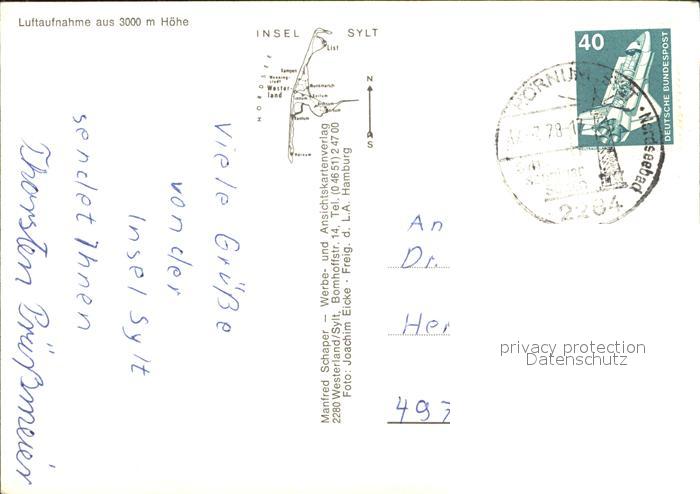 Luftaufnahme aus 3000 m Höhe
INSEL SYLT
NORDSEE
List
Kampen
Wester-
land
Hörnum
N
S
Viele Grüße
von der
Insel Sylt
sendet Ihnen
Thorsten
Manfred Schaper – Werbe- und Ansichtskartenverlag
2280 Westerland/Sylt, Bomhoffstr. 14, Tel. (0 46 51) 2 47 00
Foto: Joachim Eicke · Freig. d. L.A. Hamburg
40
DEUTSCHE BUNDESPOST
HÖRNUM
Nordseebad
2284
An
Dr.
Her
497
privacy protection
Datenschutz